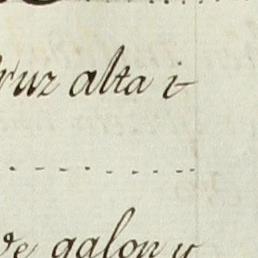 ruz alta i
ve galon y